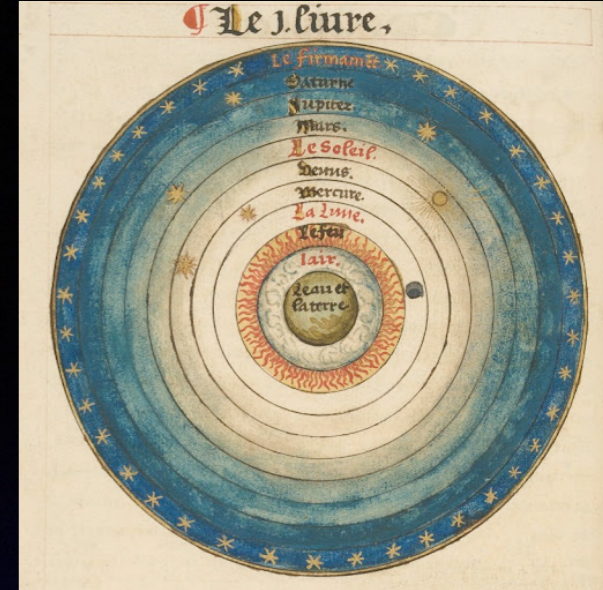 ¶ Le j. liure.
Le firmamēt
Saturne
Jupiter.
Mars.
Le Soleil.
Venus.
Mercure.
La Lune.
Le feu
lair.
Leau et
la terre